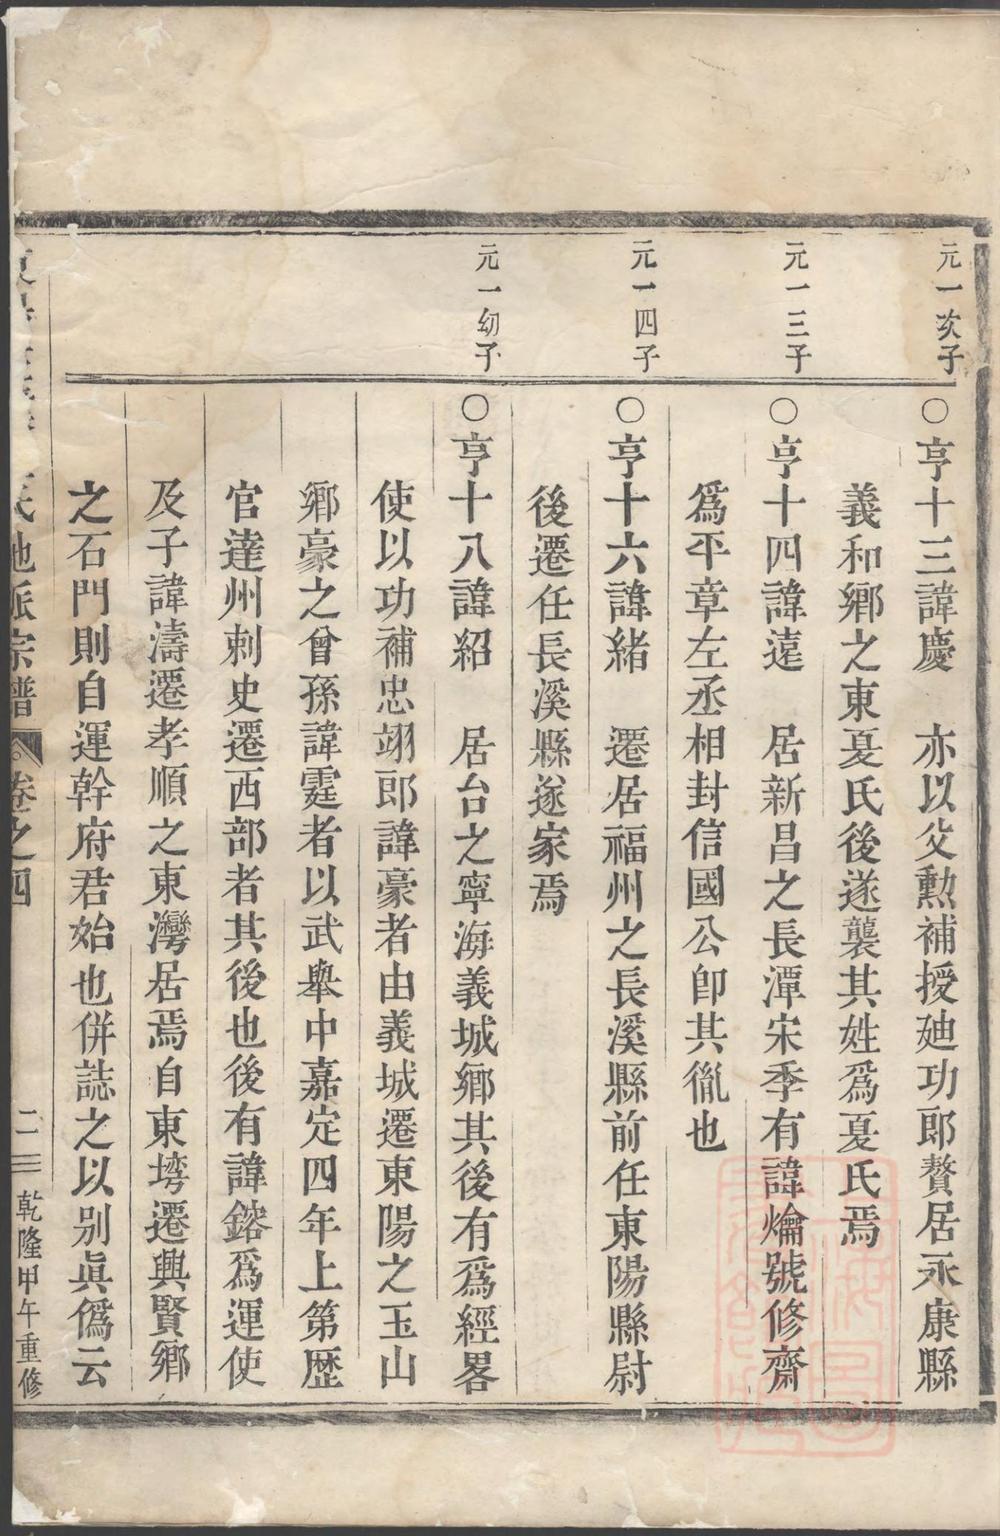 元一次子
○亨十三諱慶　亦以父勲補授廸功郎贅居永康縣
義和鄉之東夏氏後遂襲其姓爲夏氏焉
元一三子
○亨十四諱遠　居新昌之長潭宋季有諱爚號修齋
爲平章左丞相封信國公卽其胤也
元一四子
○亨十六諱緒　遷居福州之長溪縣前任東陽縣尉
後遷任長溪縣遂家焉
元一幼子
○亨十八諱紹　居台之寧海義城鄉其後有爲經畧
使以功補忠翊郎諱豪者由義城遷東陽之玉山
鄉豪之曾孫諱霆者以武舉中嘉定四年上第歷
官達州刺史遷西部者其後也後有諱鎔爲運使
及子諱濤遷孝順之東灣居焉自東塆遷興賢鄉
之石門則自運幹府君始也併誌之以别眞僞云
氏地派宗譜　卷之四　二十三　乾隆甲午重修